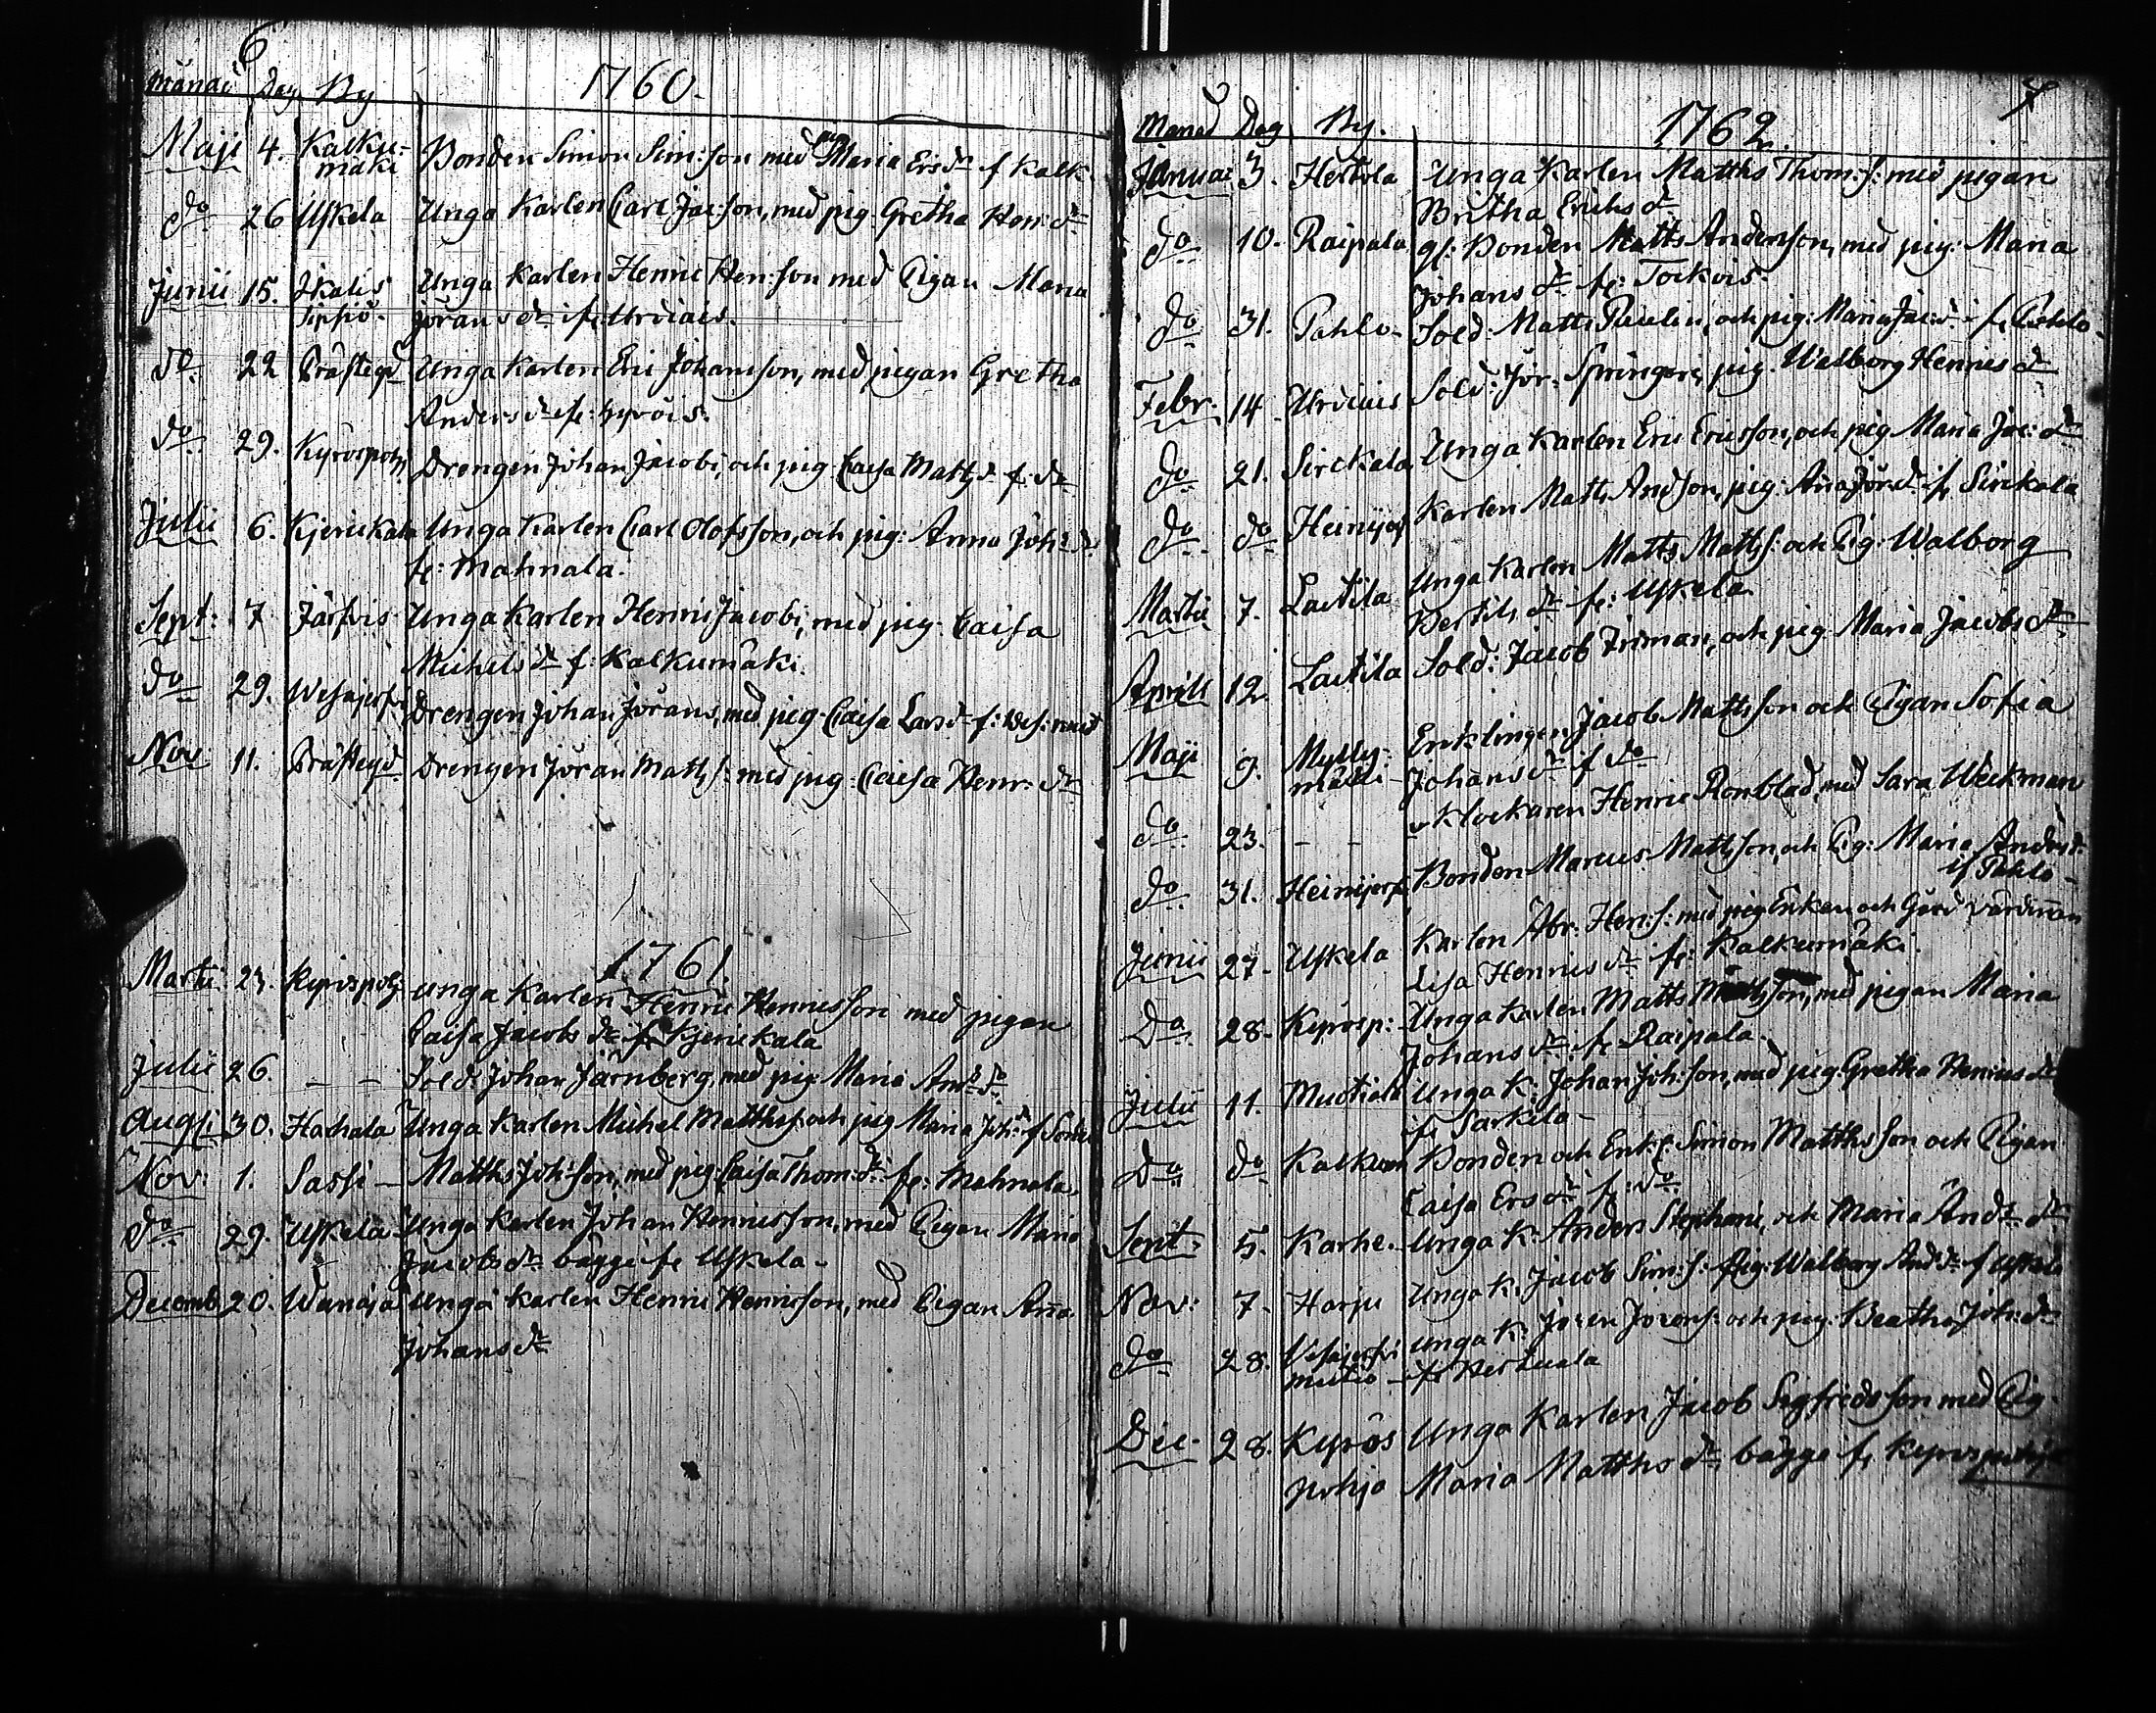 6
Månad Dag By 1760.
Maji 4. Kalku- Bonden Simon Sim:son med Maria Ersdr f Kalk
mäki
do 26 Uskela Unga Karlen Carl Jac:son, med pig. Gretha Hen: dr
Junii 15. Ikalis Unga Karlen Henric Hen:son med Pigan Maria
Sippio. Jörans dr if: Urdiais.
do 22 Prästegd Unga Karlen Eric Johansson, med pigan Gretha
Anders dr fr: Kyröis.
do 29. Kyröspohj Drengen Johan Jacobi, och pig Caisa Matts d. f. do
Julii 6. Kjerickala Unga Karlen Carl Olofsson, och pig: Anna Joh: d.
fr: Mahnala.
Sept: 7 Järfvis Unga Karlen Henric Jacobi, med pig. Caisa
Michels dr f: Kalkumäki.
do 29. Wesajerfvi Drengen Johan Jörans, med pig. Caisa Lars dr f:
Nov 11. Prästegd. Drengen Jöran Matts s: med pig: Caisa Henr: dr
1761
Martii 23. Kyröspohj Unga Karlen Henric Henricsson med pigan
Caisa Jacobs dr fr Kjerickala
Julii 26. - - Sold: Johan Järnberg, med pig: Maria And: dr
Augu: 30. Hachala Unga Karlen Michel Matths s: och pig Maria Joh: d f
Nov: 1. Sassi - Matths Joh:son, med pig: Caisa Thom: dr fr: Mahnala.
do 29. Uskela Unga Karlen Johan Henricsson, med Pigan Maria
Jacobs dr bägge fr Uskela -
Decemb 20. Wanaja Unga Karlen Henric Henricsson, med Pigan Anna
Johans dr
7
Månad Dag By. 1762.
Januar 3. Hertola Unga Karlen Matths Thom: s: med pigan
Britha Erichs dr
do 10. Raipala gl: Bonden Matts Andersson, med pig: Maria
Johans dr fr: Tockois.
do 31. Pahlo - Sold: Matts Paulin, och pig: Maria Jac: d. fr Pahlo -
Febr. 14 Urdiais Sold: Jör: Springare, pig. Walborg Henrics dr
do 21. Sirckala Unga Karlen Eric Ericsson, och pig Maria Jac: dr
do do Heinijerf Karlen Matts And:son, pig: Anna Jör: d. fr Sirckala
Martii 7. Laitila Unga Karlen Matts Matts s: och Pig: Walborg
Bertils dr fr: Uskela
Aprill 12. Laitila Sold: Jacob Friman, och pig Maria Jacobs dr
Maji 9. Mylly- Enklingen Jacob Mattsson och Pigan Sofia
mäki - Johans dr f do
do 23. - - Klockaren Henric Rönblad, med Sara Weckman
do 31. Heinijerf Bonden Marcus Mattsson, och Pig: Maria Anders d:
if Pahlo -
Junii 27. Uskela Karlen Abr: Hen: s: med pig Enkan och Gård värdinnan
Lisa Henrics dr fr: Kalkumäki.
Do 28. Kyrösp: Unga Karlen Matts Mattsson, med pigan Maria
Johans dr: fr Raipala.
Julii 11. Mustiala Unga K: Johan Joh:son, med pig Gretha Henrics dr
fr Sarkela -
Do do Kalkum Bonden och Enk:l: Simon Matthsson och Pigan
Caisa Ers dr fr: do
Sept: 5. Karhe. Unga K. Anders Stephani, och Maria And: dr
Nov: 7. Harju Unga K. Jacob Sim: s: Pig: Walborg And: dr f Uskela
do 28. Vesajerfvi Unga K: Jören Jörens: och pig: Beatha Joh: dr
Dec. 28. Kyrös Unga Karlen Jacob Sigfredsson med Pig.
pohja Maria Matths dr, bägge fr Kyröspohja